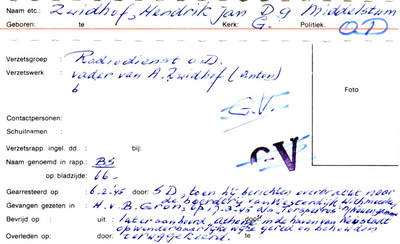 Naam etc.: Zuidhof, Hendrik Jan D g Middelstum
Geboren: te Kerk: G. Politiek: OD
Verzetsgroep : Radiodienst O.D.
Verzetswerk : vader van A. Zuidhof (Anton)
b
G.V.
Foto
Contactpersonen:
Schuilnamen:
Verzetsrapp. ingel. dd. : bij:
GV
Naam genoemd in rapp.: BS
op bladzijde: 66.
Gearresteerd op : 6.2.45 door: S.D. toen hij berichten overbracht naar
de boerderij van Westerdijk, Withmeeden
Gevangen gezeten in : H.v.B. Gron. op
Bevrijd op : uit : later aan boord "Athen" door: in de haven van Neustadt
op wonderbaarlijke wijze gered en behouden
Overleden op: te: teruggekeerd.